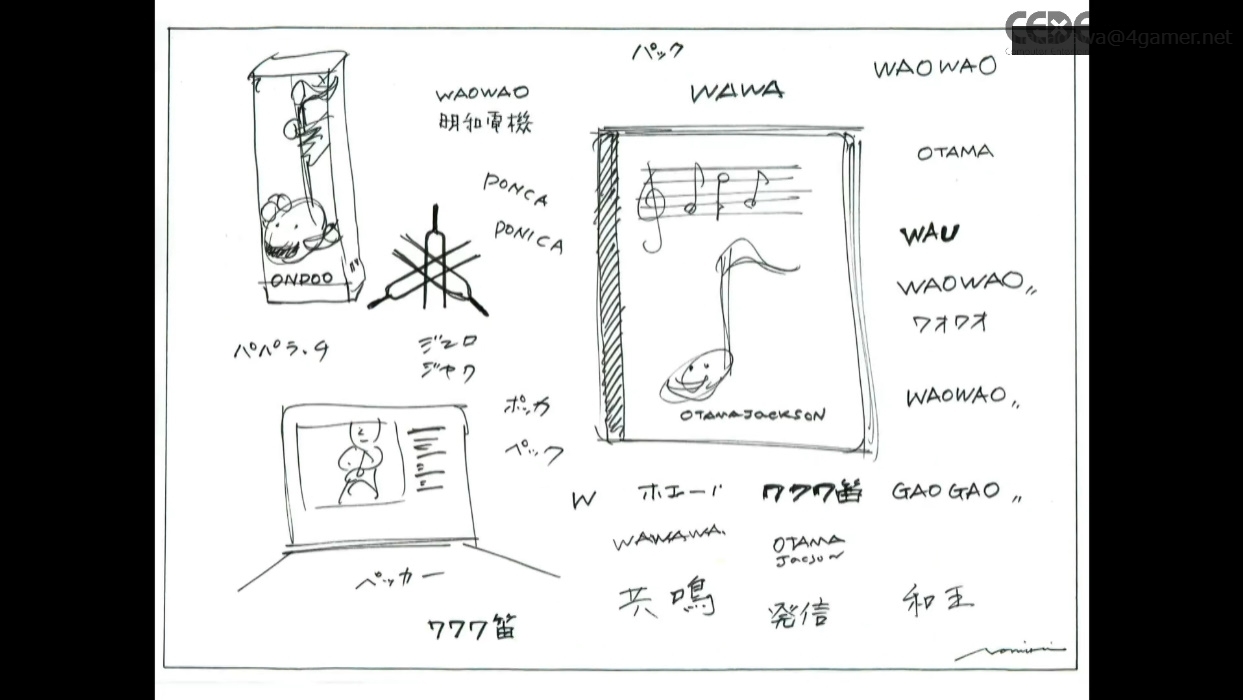 パック
WAOWAO
WAOWAO
明和電機
WAWA
OTAMA
PONCA
PONICA
WAU
WAOWAO〃
ワオワオ
ONPOO
パパラッチ
ジェロ
ジャク
ポッカ
ペック
OTAMAJACKSON
WAOWAO〃
W
ホエード
ワワワ笛
GAOGAO〃
WAWAWA
OTAMA
Jacson
ペッカー
共鳴
発信
和王
ワワワ笛
@4gamer.net